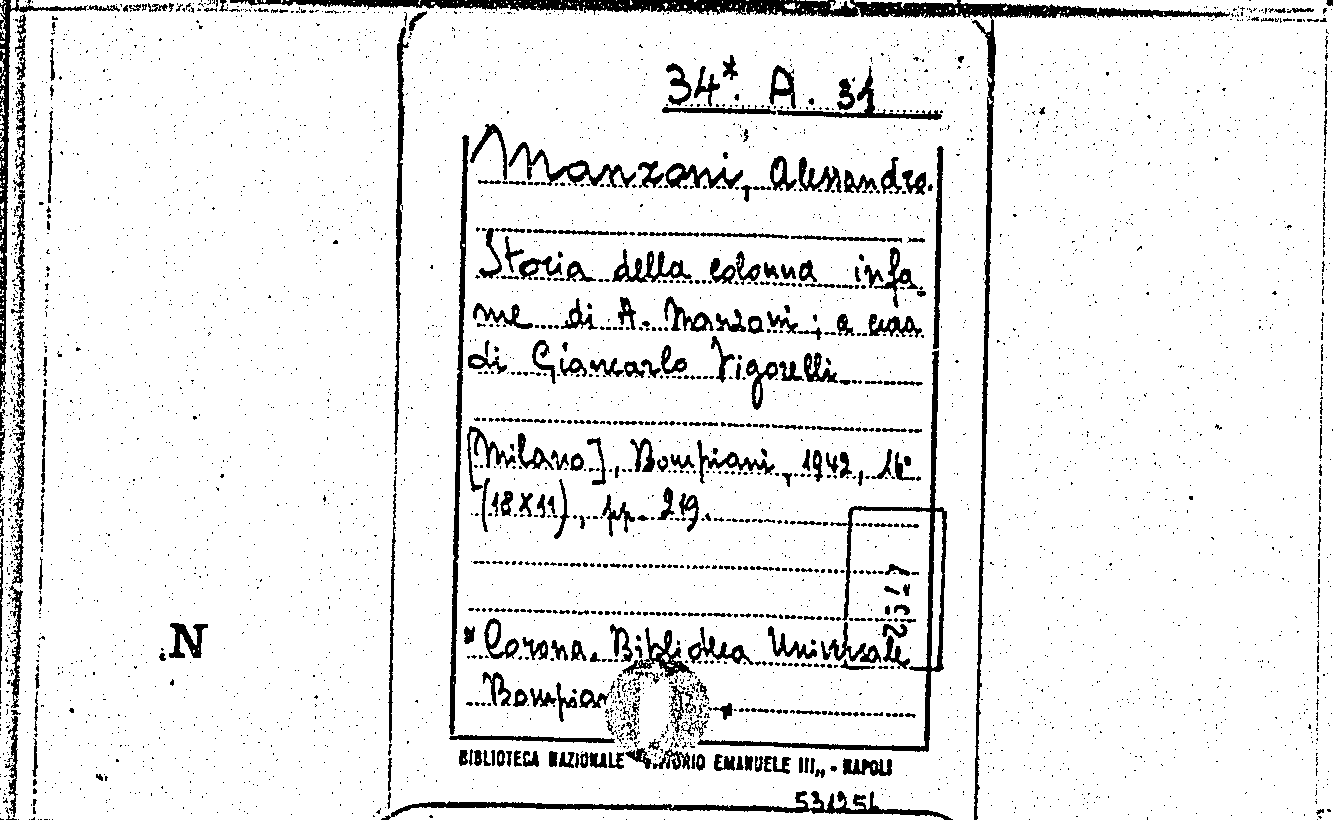 34*. A. 31
Manzoni, Alessandro.
Storia della colonna infa-
me di A. Manzoni; a cura
di Giancarlo Vigorelli.
[Milano], Bompiani, 1942, 16°
(18x11), pp. 219.
* Corona. Biblioteca Universale
Bompiani *
N
BIBLIOTECA NAZIONALE "VITTORIO EMANUELE III,, - NAPOLI